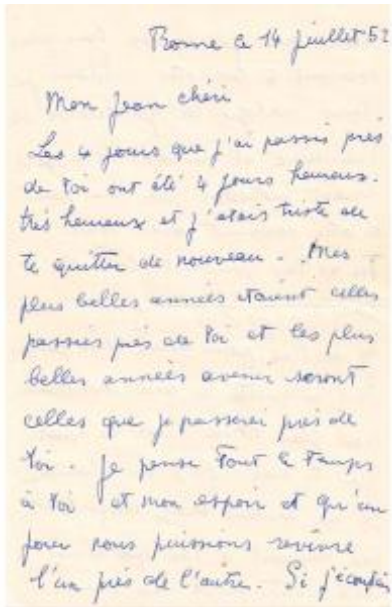 Rome le 14 juillet 52
Mon Jean chéri
Les 4 jours que j'ai passés près
de toi ont été 4 jours heureux.
très heureux et j'étais triste de
te quitter de nouveau. Mes
plus belles années étaient celles
passées près de toi et les plus
belles années avenir seront
celles que je passerai près de
toi. Je pense tout le temps
à toi et mon espoir et qu'un
jour nous puissions revivre
l'un près de l'autre. Si j'écoutais